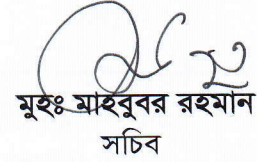 মুহঃ মাহবুবর রহমান
সচিব